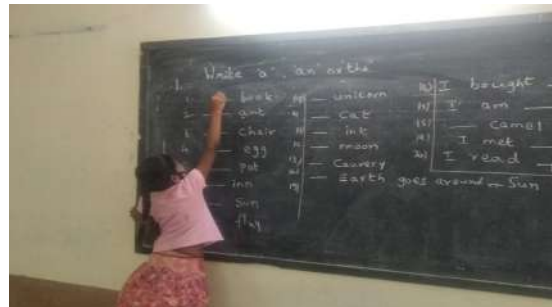 I. Write "a", "an" or "the"
1. __ book
2. __ ant
3. __ chair
4. __ egg
__ pot
__ inn
__ Sun
flag
__ unicorn
__ cat
__ ink
__ moon
__ Cauvery
__ Earth goes around __ Sun
I bought
I am __
__ camel
I met __
I read __